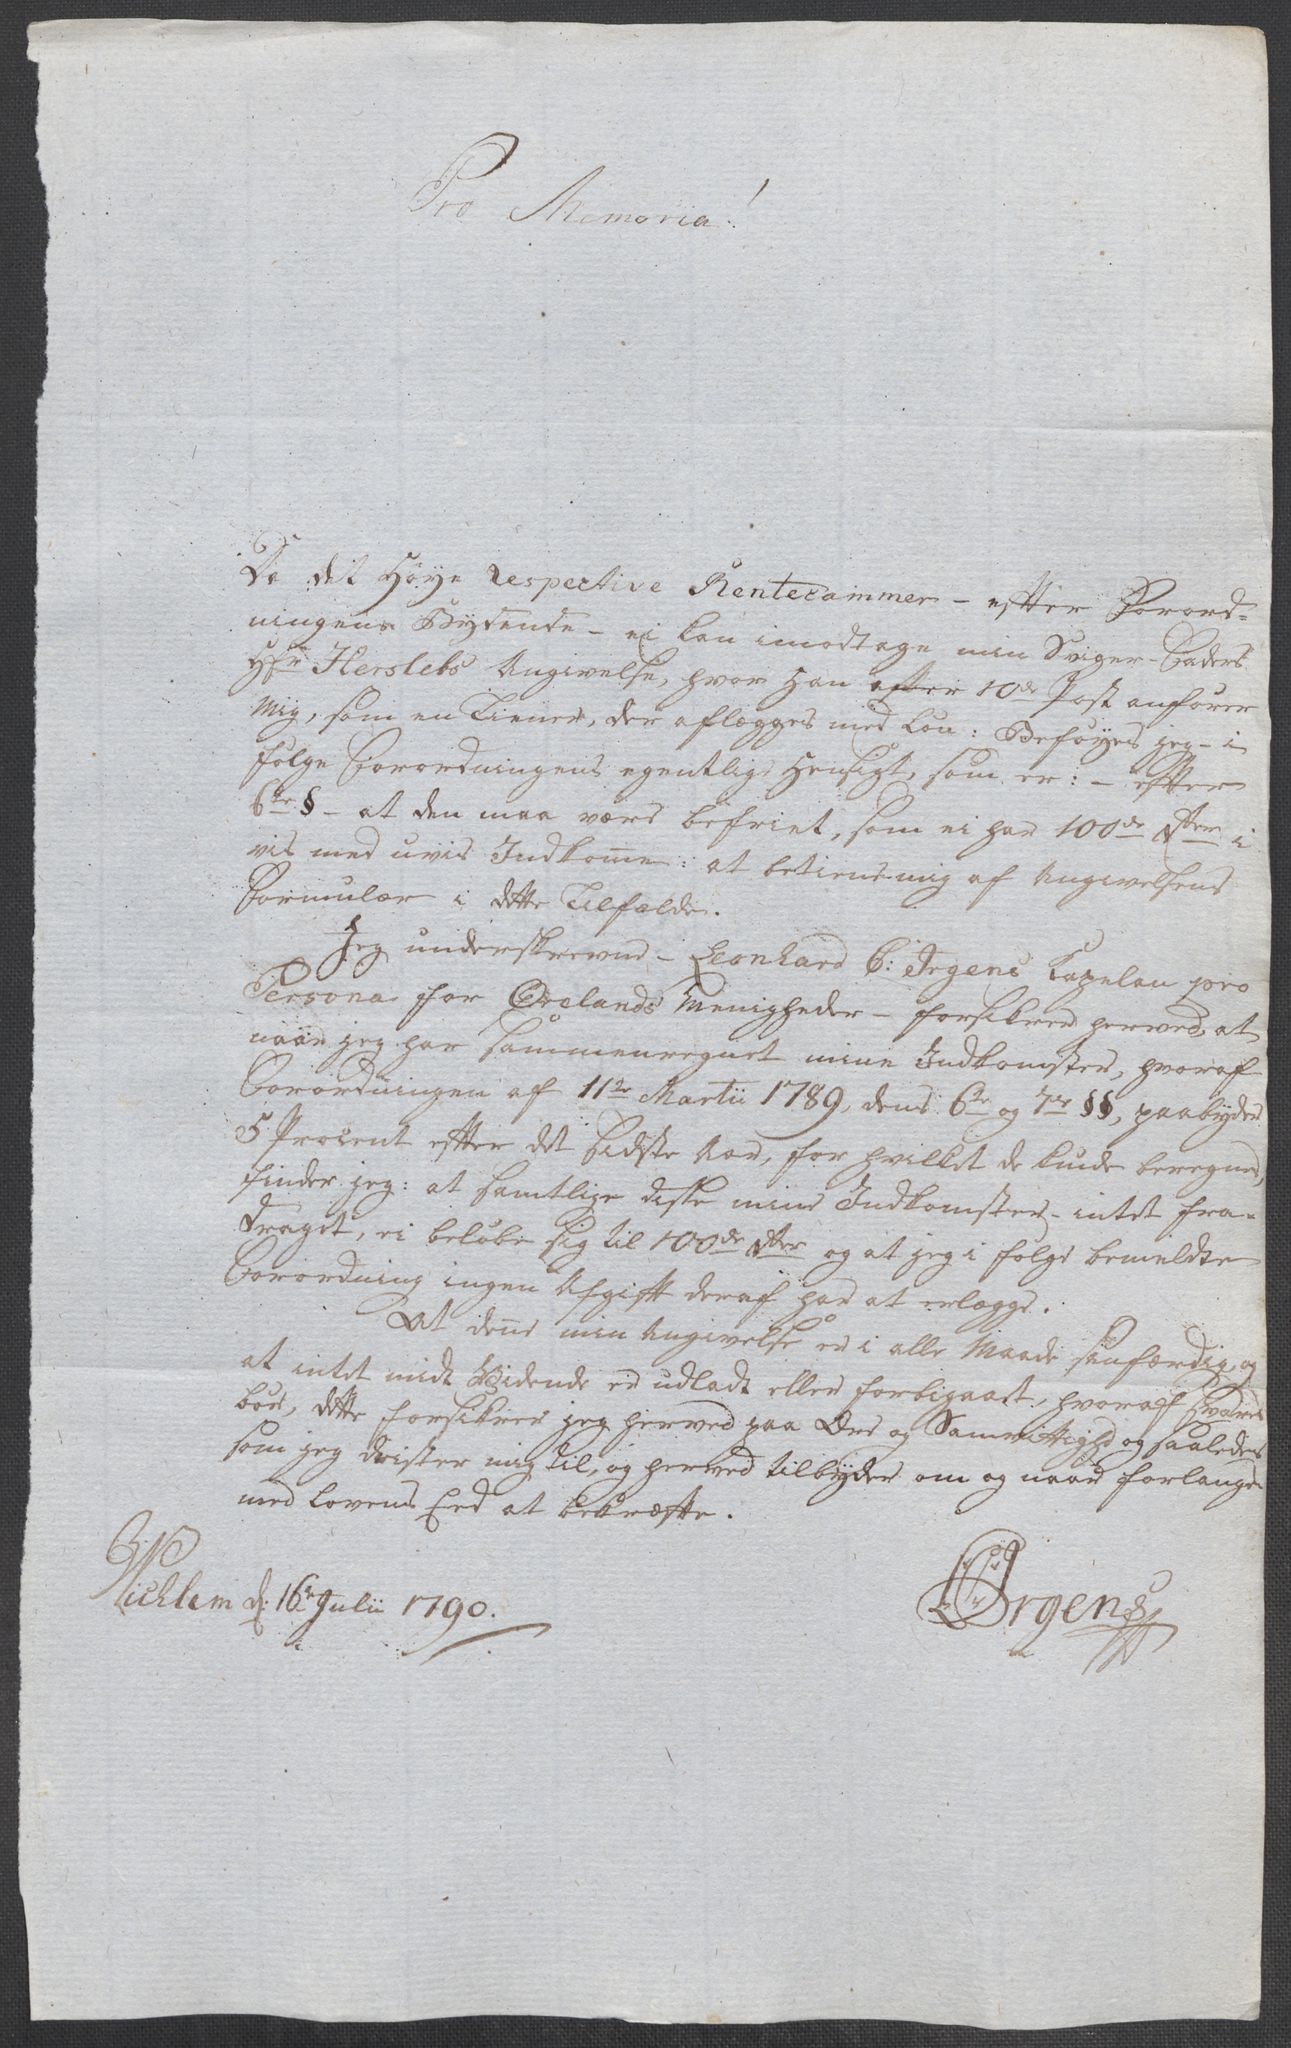 Pro Memoria!
Da det Høye respective Rentecammer - efter Forord-
ningens Bydende - ei kan imodtage min Sviger-Faders
Hr Herslebs Angivelse, hvor Han efter 10de Post anfører
Mig, som en Tiener, der aflægges med Løn: Beføyes jeg - i
følge Forordningens egentlige Hensigt, som er: - efter
6te § - at den maa være befriet, som ei har 100de rdlr i
vis med uvis Indkomme: at betiene mig af Angivelsens
Formular i dette Tilfælde.
Jeg underskrevne - Leonhard C: Irgens Capelan pro
Persona for Ørelands Menigheder - forsikrer herved, at
naar jeg har sammenregnet mine Indkomster, hvoraf
Forordningen af 11te Martii 1789, dens 6te og 7de §§, paabyder
5 Procent efter det sidste Aar, for hvilket de kunde beregnes,
finder jeg: at samtlige disse mine Indkomster - intet fra-
draget, ei beløbe sig til 100de rdlr og at jeg i følge bemeldte
Forordning ingen Afgift deraf har at erlægge.
At denne min Angivelse er i alle Maade sanfærdig, og
at intet midt Vidende er udladt eller forbigaaet, hvoraf svares
bør, dette forsikrer jeg herved paa Ære og Samvittighed og saaledes
som jeg drister mig til, og herved tilbyder om og naar forlanges
med Lovens Eed at bekræfte.
Wichlem d: 16de Julii 1790.
LCIrgens